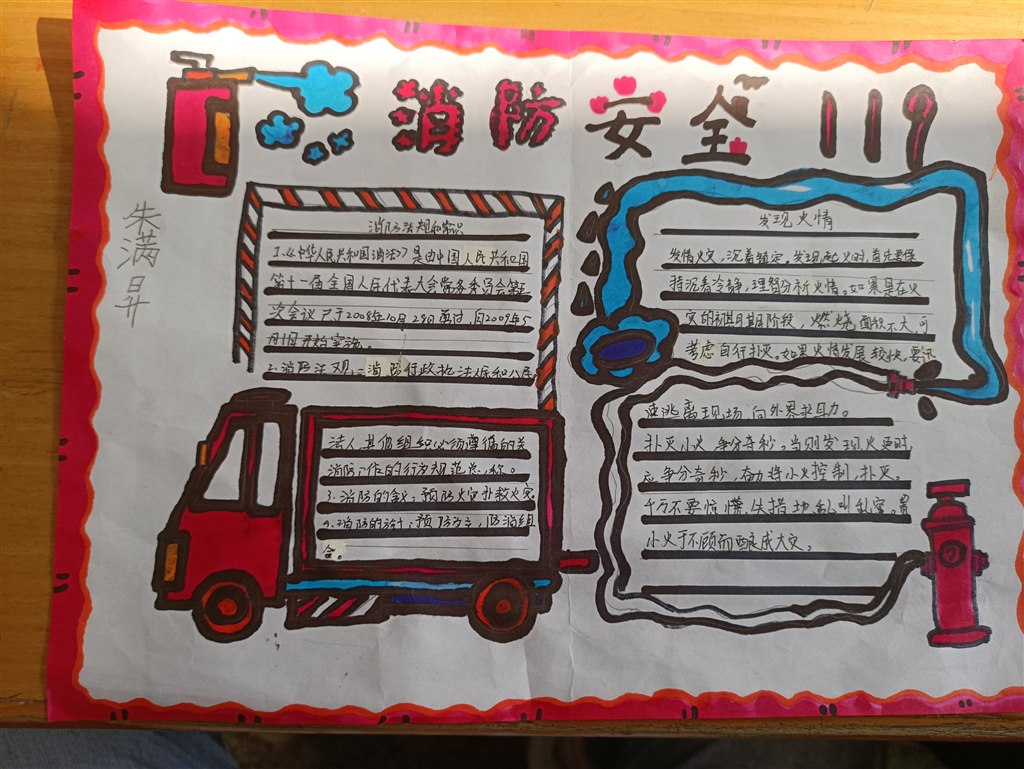 消防安全119
朱满昇
消防法规和常识
1.《中华人民共和国消法》是由中国人民共和国
第十一届全国人民代表大会常务委员会第五
次会议已于2008年10月28日通过,自2009年5
月1日开始实流。
2.消防法规:消防行政执法人民和公民
法人其他组织必须遵循的关
消防工作的行为规范总,称。
3.消防的含义:预防火灾扑救火灾
4.消防的方针:预防为主,防消组
合。
发现火情
发情火灾,沉着镇定,发现起火时,首先要保
持沉着冷静,理智分析火情。如果是在火
灾的初期阶段,燃烧面积不大,可
考虑自行扑灭。如果火情发展较快,要迅
速逃离现场,向外界求助力。
扑灭小火,争分夺秒。当刚发现火要时,
应争分夺秒,奋力将小火控制,扑灭。
千万不要惊慌失措地乱叫乱窜。置
小火于不顾而酿成大灾。